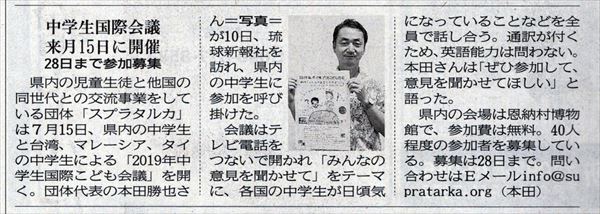 中学生国際会議
来月15日に開催
28日まで参加募集
県内の児童生徒と他国の
同世代との交流事業をして
いる団体「スプラタルカ」
は7月15日、県内の中学生
と台湾、マレーシア、タイ
の中学生による「2019年中
学生国際こども会議」を開
く。団体代表の本田勝也さ
ん=写真=
が10日、琉
球新報社を
訪れ、県内
の中学生に
参加を呼び
掛けた。
会議はテ
レビ電話を
つないで開かれ「みんなの
意見を聞かせて」をテーマ
に、各国の中学生が日頃気
になっていることなどを全
員で話し合う。通訳が付く
ため、英語能力は問わない。
本田さんは「ぜひ参加して、
意見を聞かせてほしい」と
語った。
県内の会場は恩納村博物
館で、参加費は無料。40人
程度の参加者を募集してい
る。募集は28日まで。問い
合わせはEメールinfo@su
pratarka.org（本田）